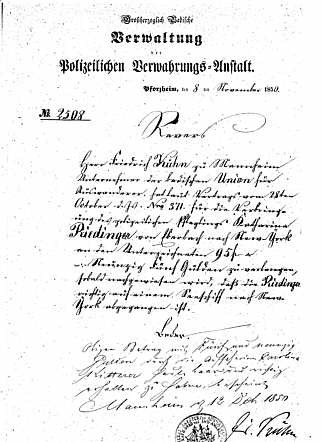 Großherzoglich Badische
Verwaltung
der
Polizeilichen Verwahrungs-Anstalt.
Pforzheim, den 8 ten November 1850.
No. 2508
Revers
Herr Friedrich Kühn zu Mannheim
Unternehmer der badischen Union für
Auswanderer hat laut Vertrags vom 18ten
October d.J. No 571. für die Verbringung
des polizeilichen Pfleglings Katharina
Riedinger von Morbach nach New York
an den Unterzeichneten 95 f
Neunzig Fünf Gulden zu verlangen,
sobald nachgewiesen wird, daß die Riedinger
richtig auf einem Seeschiff nach New
York abgegangen ist.
Bader
Obigen Betrag mit Fünf und neunzig
Gulden
erhalten zu haben bescheint
Mannheim d 12 Dec 1850
Fr. Kühn